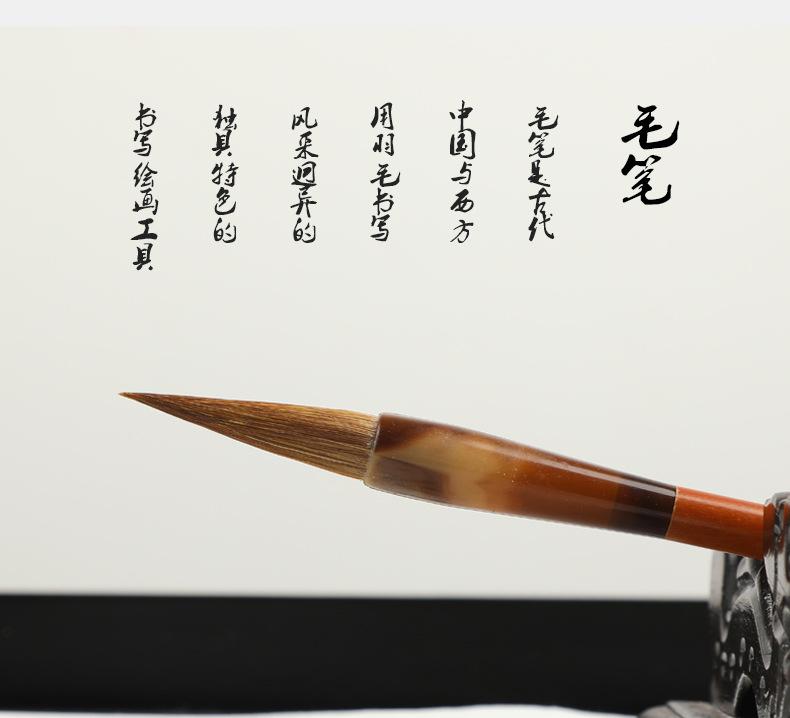 毛笔
毛笔是古代
中国与西方
用羽毛书写
风采迥异的
独具特色的
书写绘画工具